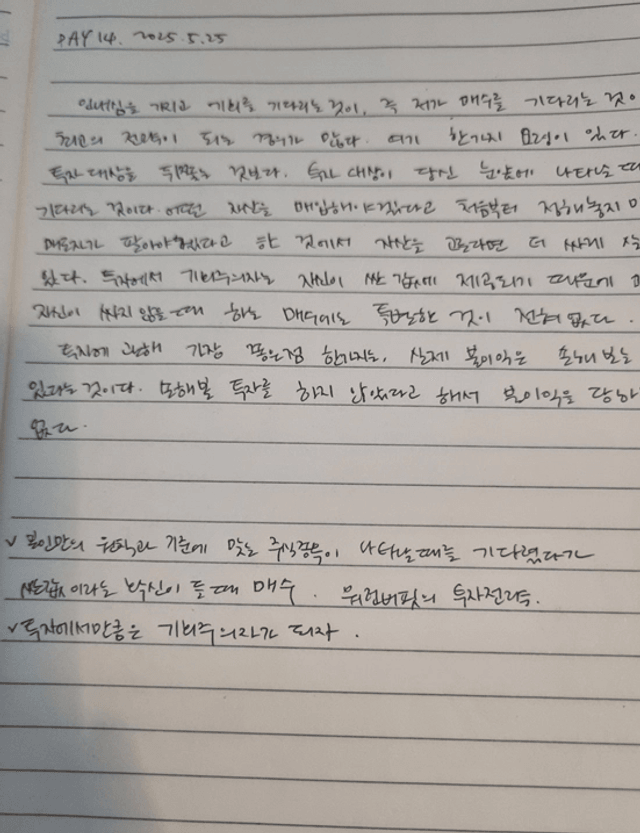 DAY 14. 2025.5.25
인내심을 가지고 기회를 기다리는 것이, 즉 저가 매수를 기다리는 것이
최고의 전략이 되는 경우가 많다. 여기 한가지 요령이 있다.
투자 대상을 뒤쫓는 것보다. 투자 대상이 당신 눈앞에 나타날 때
기다리는 것이다. 어떤 자산을 매입해야겠다고 처음부터 정해놓지
매도자가 팔아야겠다고 한 것에서 자산을 고른다면 더 싸게
있다. 투자에서 기회주의자는 자산이 싼 값에 제공되기 때문에
자산이 싸지 않을 때 하는 매수에는 특별한 것이 전혀 없다.
투자에 관해 가장 좋은점 한가지는, 실제 불이익은 손해 보는
있다는 것이다. 손해볼 투자를 하지 않았다고 해서 불이익을 당하
없다.
v 본인만의 원칙과 기준에 맞는 주식종목이 나타날때를 기다렸다가
싼값 이라는 확신이 들 때 매수. 워런버핏의 투자전략.
v 투자에서만큼은 기회주의자가 되자.